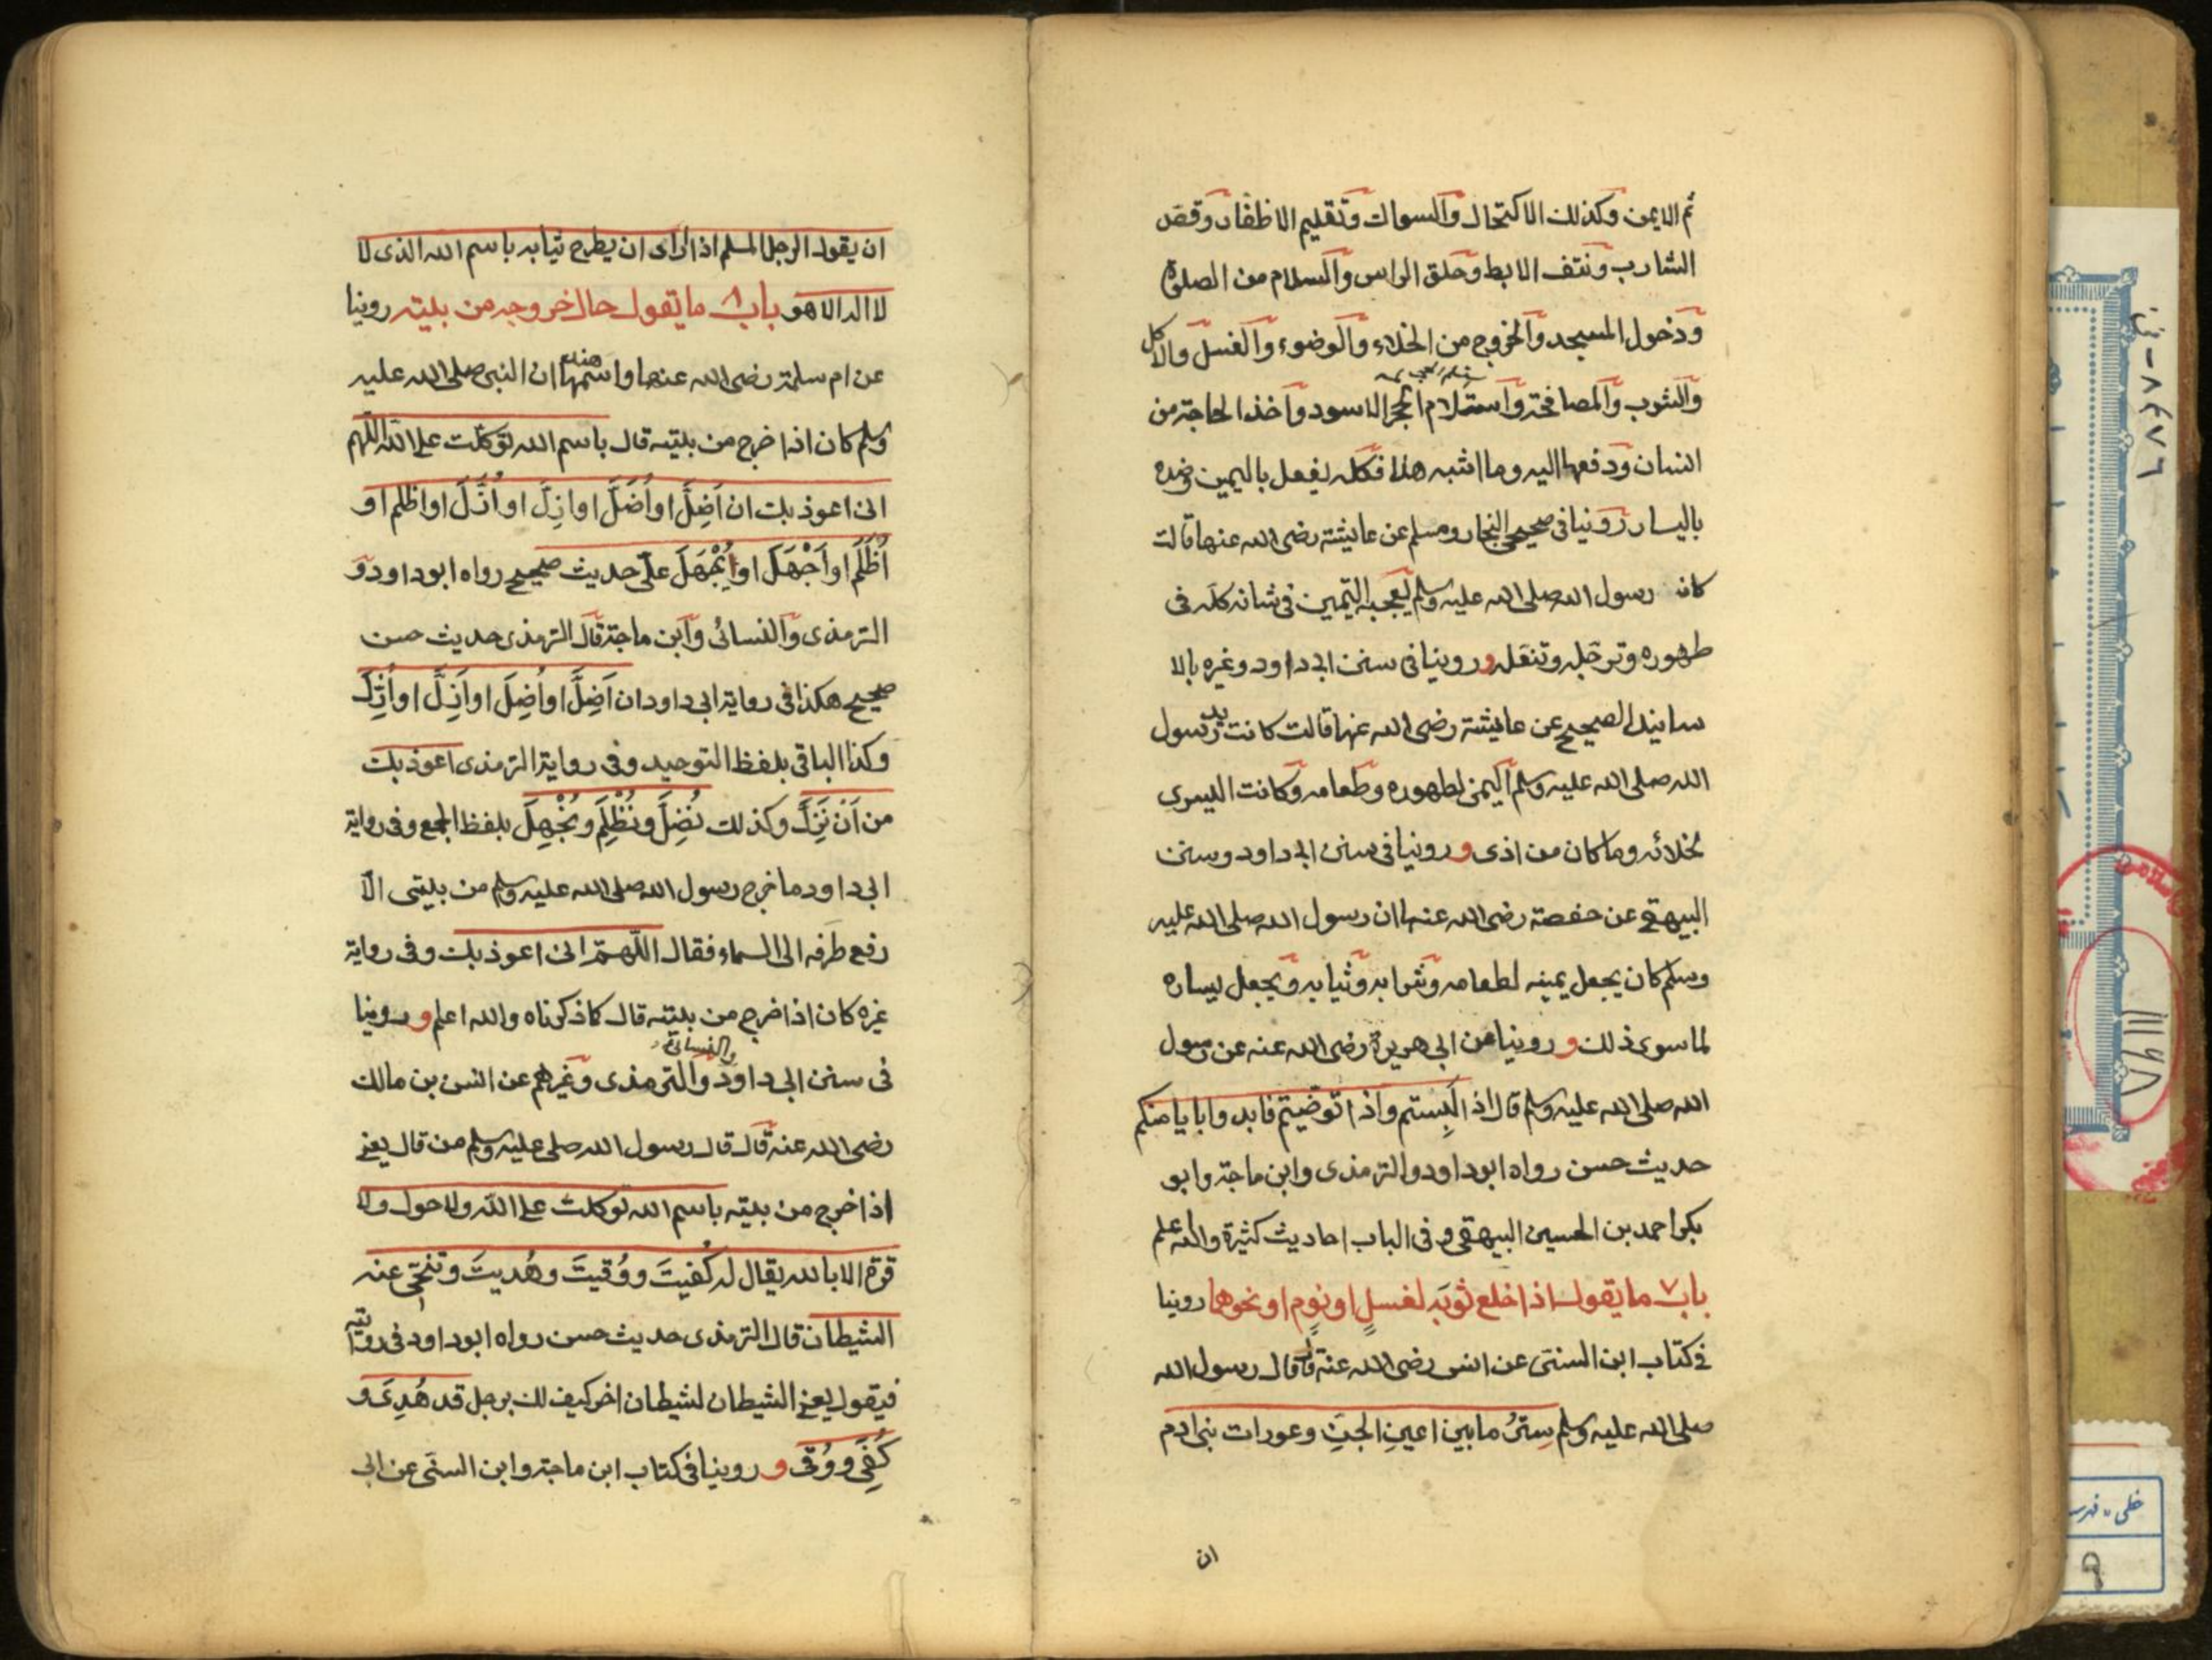 ثم الايمن وكذلك الاكتحال والسواك وتقليم الاظفار وقص
الشارب ونتف الابط وحلق الراس والسلام من الصلوة
ودخول المسجد والخروج من الخلاء والوضوء والغسل والاكل
والشرب والمصافحة واستلام الحجر الاسود واخذ الحاجة من
انسان ودفعها اليه وما اشبه هذا فكله يفعل باليمين وضده
باليسار روينا فى صحيحى البخار ومسلم عن عايشة رضى الله عنها قالت
كان رسول الله صلى الله عليه وسلم يعجبه التيمن فى شانه كله فى
طهوره وترجله وتنعله وروينا فى سنن ابى داود وغيره بالا
سانيد الصحيح عن عايشة رضى الله عنها قالت كانت يد رسول
الله صلى الله عليه وسلم اليمنى لطهوره وطعامه وكانت اليسرى
لخلائه وما كان من اذى وروينا فى سنن ابى داود وسنن
البيهقى عن حفصة رضى الله عنها ان رسول الله صلى الله عليه
وسلم كان يجعل يمينه لطعامه وشرابه وثيابه ويجعل يساره
لما سوى ذلك وروينا عن ابى هريرة رضى الله عنه عن رسول
الله صلى الله عليه وسلم قال اذا لبستم واذا توضيتم فابدوا بايامنكم
حديث حسن رواه ابو داود والترمذى وابن ماجة وابو
بكر احمد بن الحسين البيهقى وفى الباب احاديث كثيرة والله اعلم
باب ٧ ما يقول اذا خلع ثوبه لغسل او نوم او نحوهما روينا
فى كتاب ابن السنى عن انس رضى الله عنه قال قال رسول الله
صلى الله عليه وسلم ستر ما بين اعين الجن وعورات بنى ادم
ان
ان يقول الرجل المسلم اذا اراد ان يطرح ثيابه باسم الله الذى لا
لا اله الا هو باب ٨ ما يقول حال خروجه من بيته روينا
عن ام سلمة رضى الله عنها واسمها هند ان النبى صلى الله عليه
وسلم كان اذا خرج من بيته قال باسم الله توكلت على الله اللهم
انى اعوذ بك ان اَضِلَّ او اُضَلَّ او ازِلَّ او اُزَلَّ او اظلم او
اُظْلَم او اَجْهَل او يُجْهَلَ علىّ حديث صحيح رواه ابو داود و
الترمذى والنسائى وابن ماجة قال الترمذى حديث حسن
صحيح هكذا فى رواية ابى داود ان اَضِلَّ او اُضِلَّ او اَزِلَّ او اُزِلَّ
وكذا الباقى بلفظ التوحيد وفى رواية الترمذى اعوذ بك
من اَن نَزِلَّ وكذلك نُضِلَّ ونُظْلِم ونُجْهِل بلفظ الجمع وفى رواية
ابى داود ما خرج رسول الله صلى الله عليه وسلم من بيتى الّا
رفع طرفه الى السماء فقال اللهمّ انى اعوذ بك وفى رواية
غيره كان اذا خرج من بيته قال كما ذكرناه والله اعلم وروينا
فى سنن ابى داود والترمذى والنسائى وغيرهم عن انس بن مالك
رضى الله عنه قال قال رسول الله صلى عليه وسلم من قال يعنى
اذا خرج من بيته باسم الله توكلت على الله ولا حول ولا
قوة الا بالله يقال له كُفيتَ ووُقيتَ وهُديتَ وتنحّى عنه
الشيطان قال الترمذى حديث حسن رواه ابو داود فى روايته
فيقول يعنى الشيطان لشيطان اخر كيف لك برجل قد هُدِىَ و
كُفِىَ ووُقى وروينا فى كتاب ابن ماجة وابن السنى عن ابى
٨٤٧٦